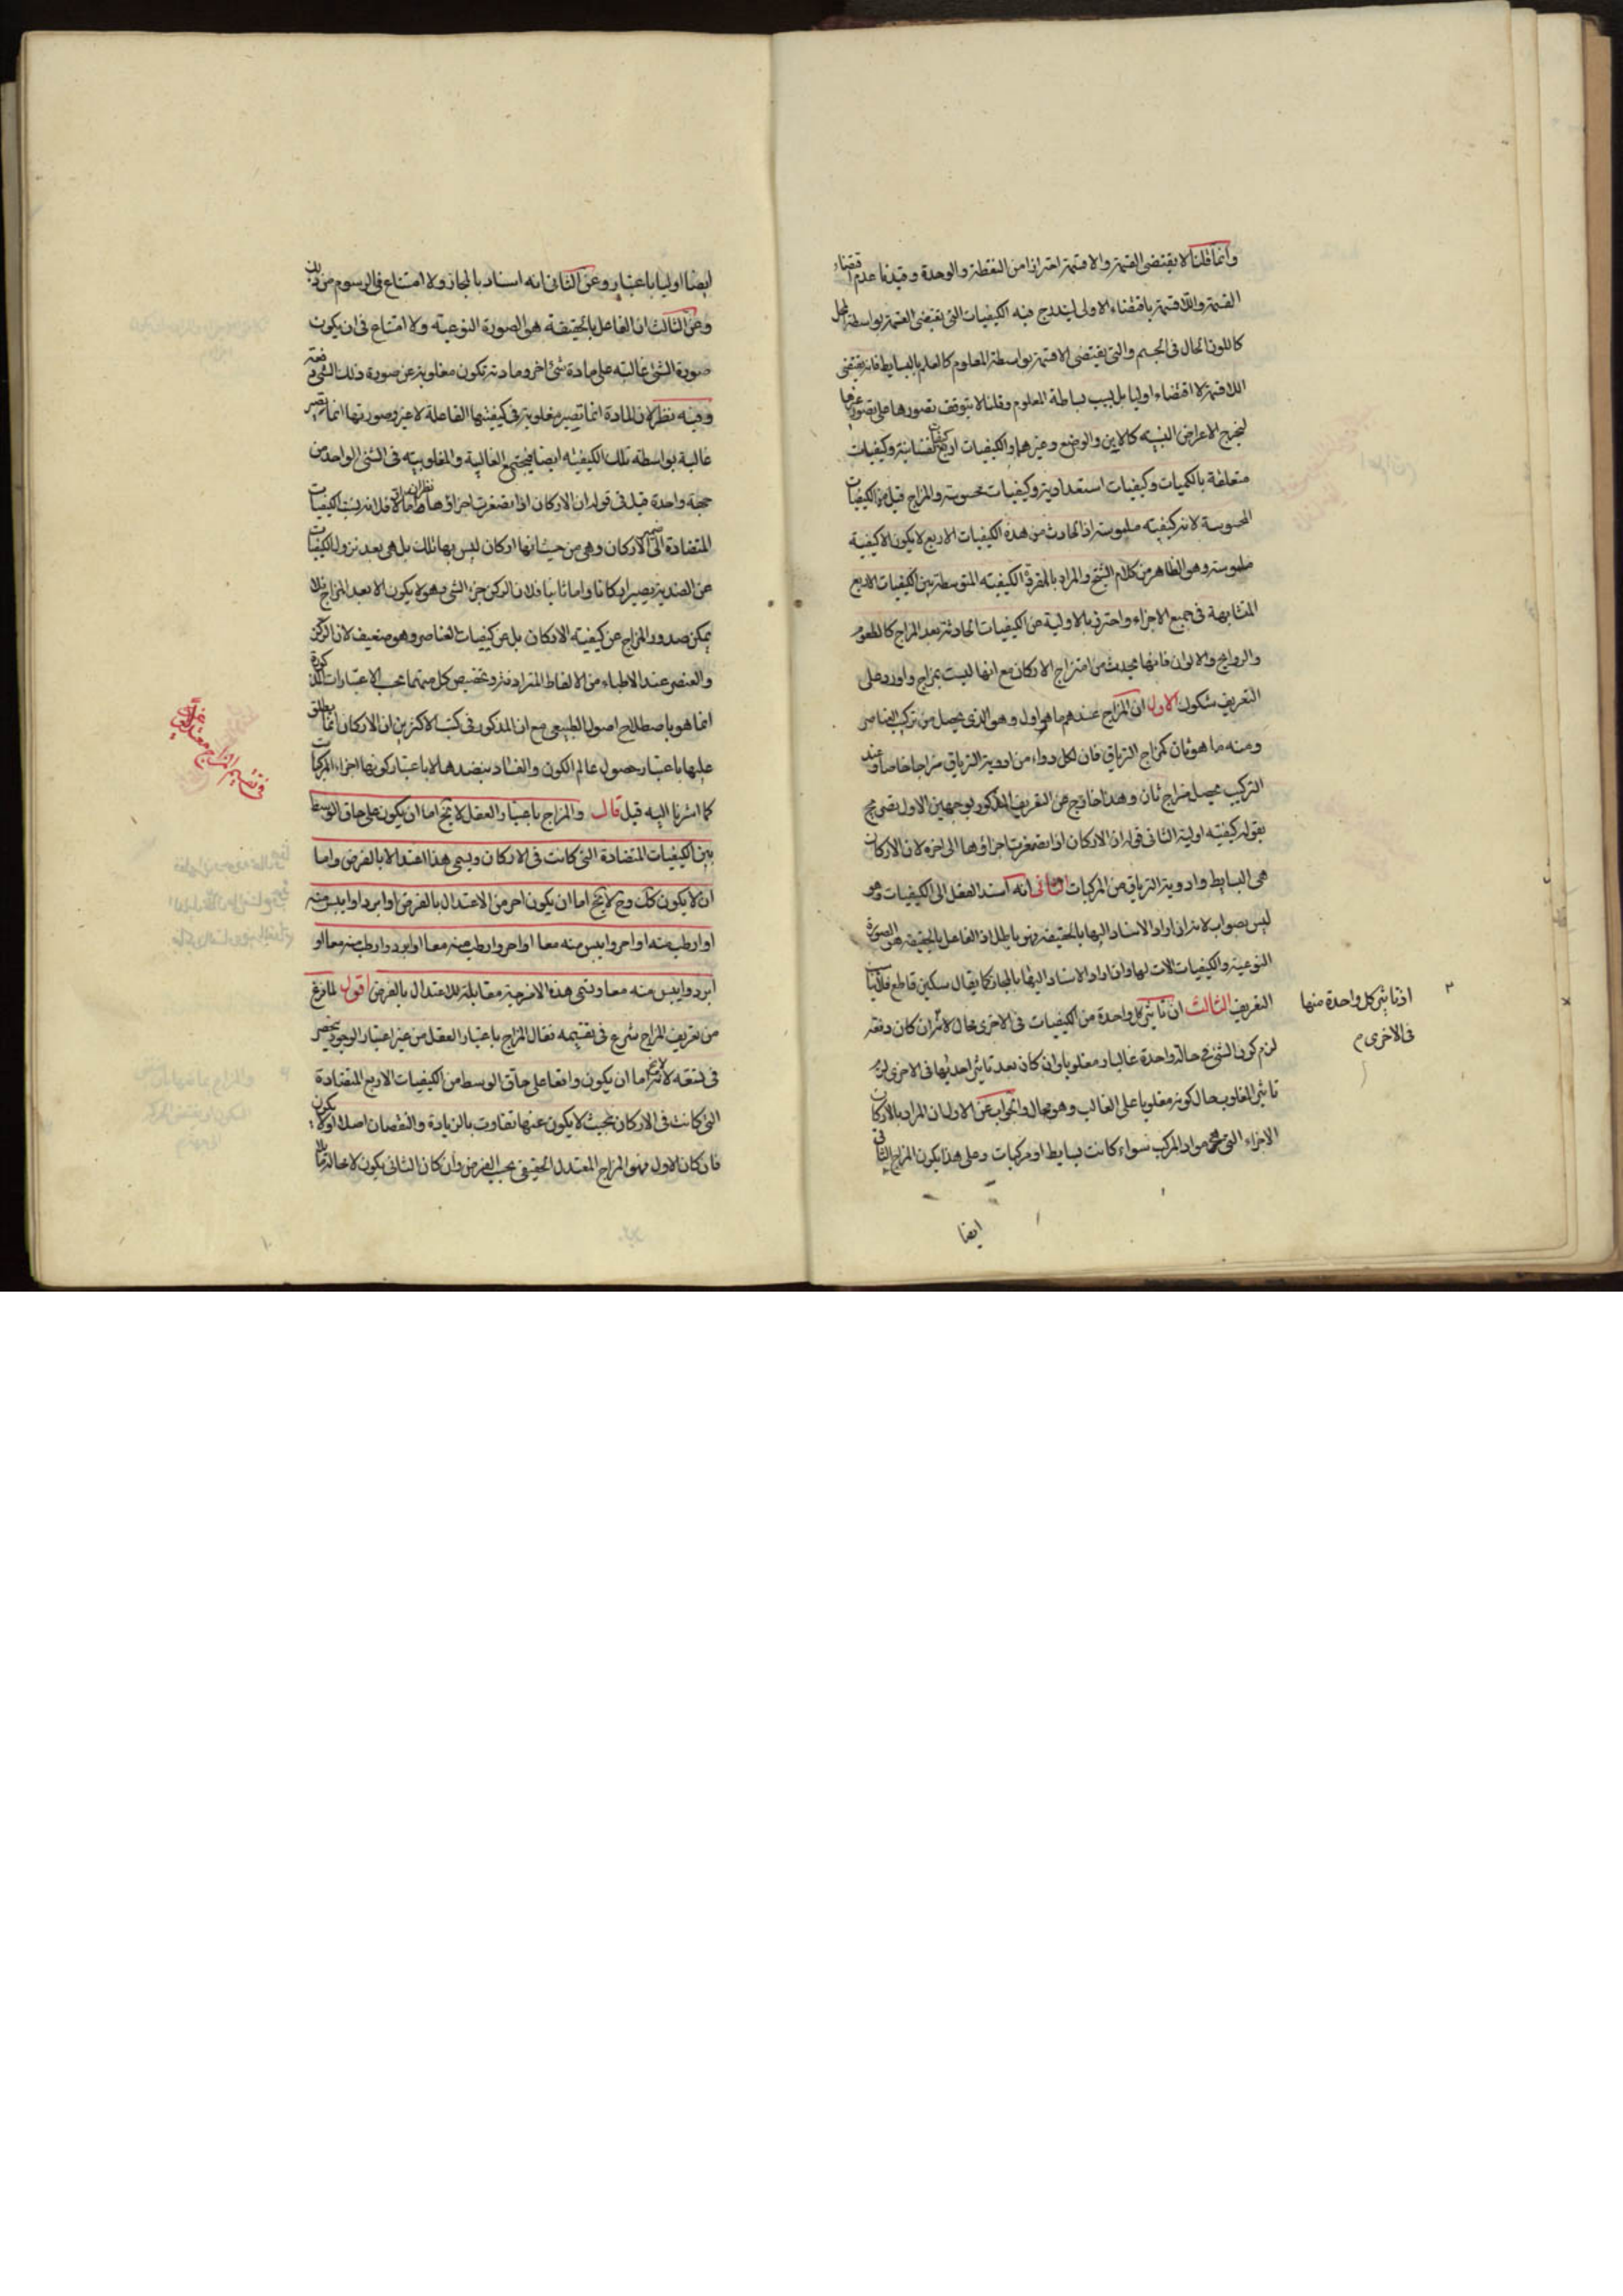 وانما قلنا لا يقتضى القسمة والاقسمة احترازا من النقطة والوحدة وقيدنا عدم اقتضاء
القسمة واللاقسمة باقتضاء الاولى ليندرج فيه الكيفيات التى يقتضى القسمة بواسطة المحل
كاللون الحال فى الجسم والتى يقتضى الاقسمة بواسطة المعلوم كالعلم بالبسايط فانه يقتضى
اللاقسمة لا اقتضاء اوليا بل بسبب بساطة المعلوم وقلنا لا يتوقف تصورها على تصور غيرها
ليخرج الاعراض النسبيه كالاين والوضع وغيرهما والكيفيات اربع كيفيات نفسانية وكيفيات
متعلقة بالكميات وكيفيات استعدادية وكيفيات محسوسة والمزاج قيل من الكيفيات
المحسوسة لانه كيفيه ملموسة اذ الحادث من هذه الكيفيات الاربع لا يكون الا كيفية
ملموسة وهو الظاهر من كلام الشيخ والمراد بالكيفيه المتوسطة بين الكيفيات الاربع
المتشابهة فى جميع الاجزاء واحترز بالاولية عن الكيفيات الحادثة بعد المزاج كالطعوم
والروايح والالوان فانها يحدث من امتزاج الاركان مع انها ليست بمزاج واورد على
التعريف شكوك الاول ان المزاج عندهم ما هو اول وهو الذى يحصل من تركيب العناصر
ومنه ما هو ثان كمزاج الترياق فان لكل دواء من ادوية الترياق مزاجا خاصا وعند
التركيب يحصل مزاج ثان وهذا خارج عن التعريف المذكور بوجهين الاول تصريحه
بقوله كيفيته اولية الثانى قوله ان الاركان اذا تصغرت اجزاؤها الى اخره لان الاركان
هى البسايط وادوية الترياق من المركبات الثانى انه اسند الفعل الى الكيفيات وهو
ليس بصواب لانه ان اراد الاسناد اليها بالحقيقه فهو باطل اذ الفاعل بالحقيقه هى الصورة
النوعية والكيفيات الات لها وان اراد الاسناد اليها بالمجاز كما يقال سكين قاطع
التعريف الثالث ان تاثير كل واحدة من الكيفيات فى الاخرى محال لانه ان كان دفعة
لزم كون الشئ فى حالة واحدة غالبا ومغلوبا وان كان بعد تاثير احديها فى الاخرى لزم
تاثير المغلوب حال كونه مغلوبا على الغالب وهو محال والجواب عن الاول ان المراد بالاركان
الاجزاء التى هى مواد المركب سواء كانت بسايط او مركبات وعلى هذا يكون المزاج الثانى
ايضا
اذ تاثير كل واحدة منها
فى الاخرى م
ايضا اوليا باعتبار وعن الثانى انه اسناد بالمجاز ولا امتناع فى الرسوم من ذلك
وعن الثالث ان الفاعل بالحقيقة هو الصورة النوعيه ولا امتناع فى ان يكون
صورة الشئ غالبته على مادة شئ اخر ومادته تكون مغلوبة عن صورة ذلك الشئ دفعة
وفيه نظر لان المادة انما تصير مغلوبة فى كيفيتها الفاعلة لا غير وصورتها انما تصير
غالبة بواسطة تلك الكيفيه ايضا فيجتمع الغالبية والمغلوبيه فى الشئ الواحد من
جهة واحدة قيل فى قوله ان الاركان اذا تصغرت اجزاؤها نظر اما اولا فلانه نسب الكيفيات
المتضادة الى الاركان وهى من حيث انها اركان ليس بها تلك بل هى بعد نزول الكيفيات
عن الضدية يصير اركانا واما ثانيا فلان الركن جزء الشئ وهو لا يكون الا بعد المزاج فلا
يمكن صدور المزاج عن كيفيته الاركان بل عن كيفيات العناصر وهو ضعيف لان الركن
والعنصر عند الاطباء من الالفاظ المترادفة وتخصيص كل منهما بحسب الاعتبارات المذكورة
انما هو باصطلاح اصول الطبيعى مع ان المذكور فى كتب الاكثرين ان الاركان انما يطلق
عليها باعتبار حصول عالم الكون والفساد بنضدها لا باعتبار كونها اجزاء المركبات
كما اشرنا اليه قبل قال والمزاج باعتبار العقل لا يخ اما ان يكون على حاق الوسط
بين الكيفيات المتضادة التى كانت فى الاركان ويسمى هذا اعتدالا بالفرض واما
ان لا يكون كك وح لا يخ اما ان يكون احر من الاعتدال بالفرض او ابرد او ايبس منه
او ارطب منه او احر وايبس منه معا او احر وارطب منه معا او ابرد وارطب منه معا او
ابرد وايبس منه معا ويسمى هذه الامزجة مقابلة للاعتدال بالفرض اقول لما فرغ
من تعريف المزاج شرع فى تقسيمه فقال المزاج باعتبار العقل من غير اعتبار الوجود ينحصر
فى تسعة لانه اما ان يكون واقعا على حاق الوسط من الكيفيات الاربع المتضادة
التى كانت فى الاركان بحيث لا يكون عنها تفاوت بالزيادة والنقصان اصلا او لا يكون
فان كان الاول فهو المزاج المعتدل الحقيقى بحسب الفرض وان كان الثانى يكون لا محالة
فى تقسيم المزاج